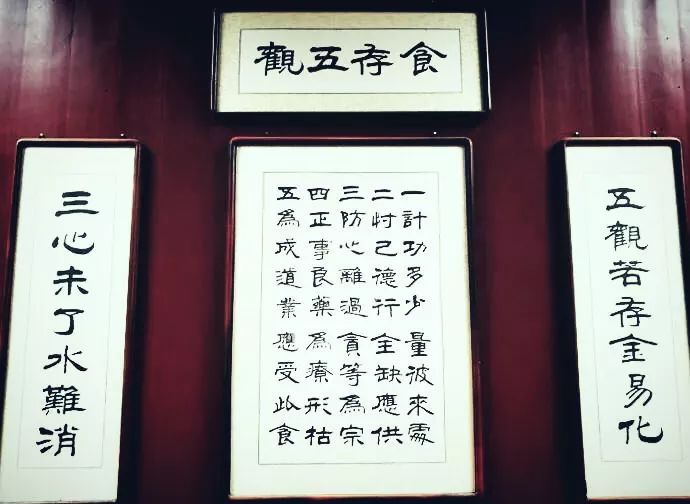 食存五觀
五觀若存金易化
一計功多少量彼來處
二忖己德行全缺應供
三防心離過貪等為宗
四正事良藥為療形枯
五為成道業應受此食
三心未了水難消